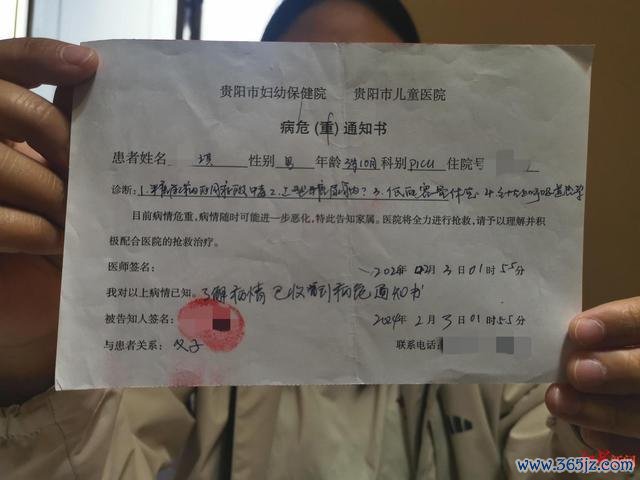 贵阳市妇幼保健院 贵阳市儿童医院
病危(重)通知书
患者姓名 琪 性别 男 年龄 3岁10月 科别 PICU 住院号
诊断: 1. 糖尿病酮症酸中毒 2. 1型糖尿病? 3. 低血容量休克 4.
目前病情危重,病情随时可能进一步恶化,特此告知家属。医院将全力进行抢救,请予以理解并积
极配合医院的抢救治疗。
医师签名: 2024年 02月 3日 01时 55分
我对以上病情已知。了解病情 已收到病危通知书
被告知人签名: 2024年 2月 3日 01时 55分
与患者关系: 父子 联系电话
www.365jz.com